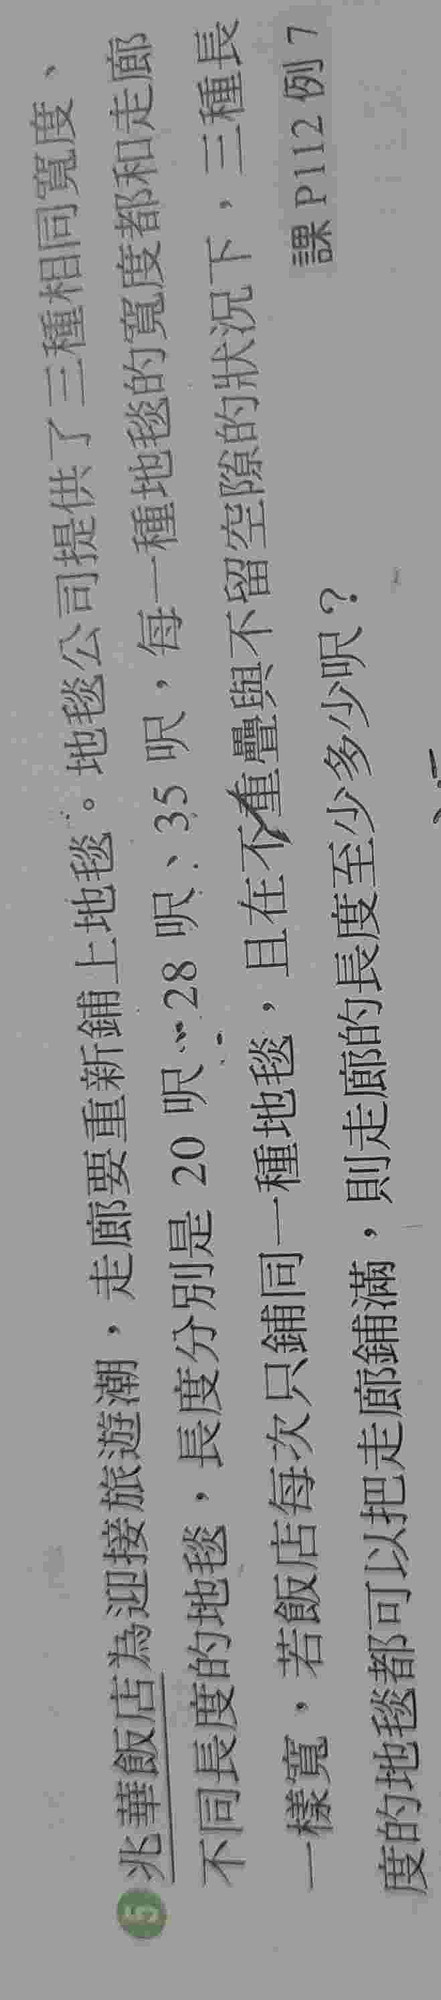 5 兆華飯店為迎接旅遊潮，走廊要重新鋪上地毯。地毯公司提供了三種相同寬度、
不同長度的地毯，長度分別是 20 呎、28 呎、35 呎，每一種地毯的寬度都和走廊
一樣寬，若飯店每次只鋪同一種地毯，且在不重疊與不留空隙的狀況下，三種長
度的地毯都可以把走廊鋪滿，則走廊的長度至少多少呎？
課 P112 例 7